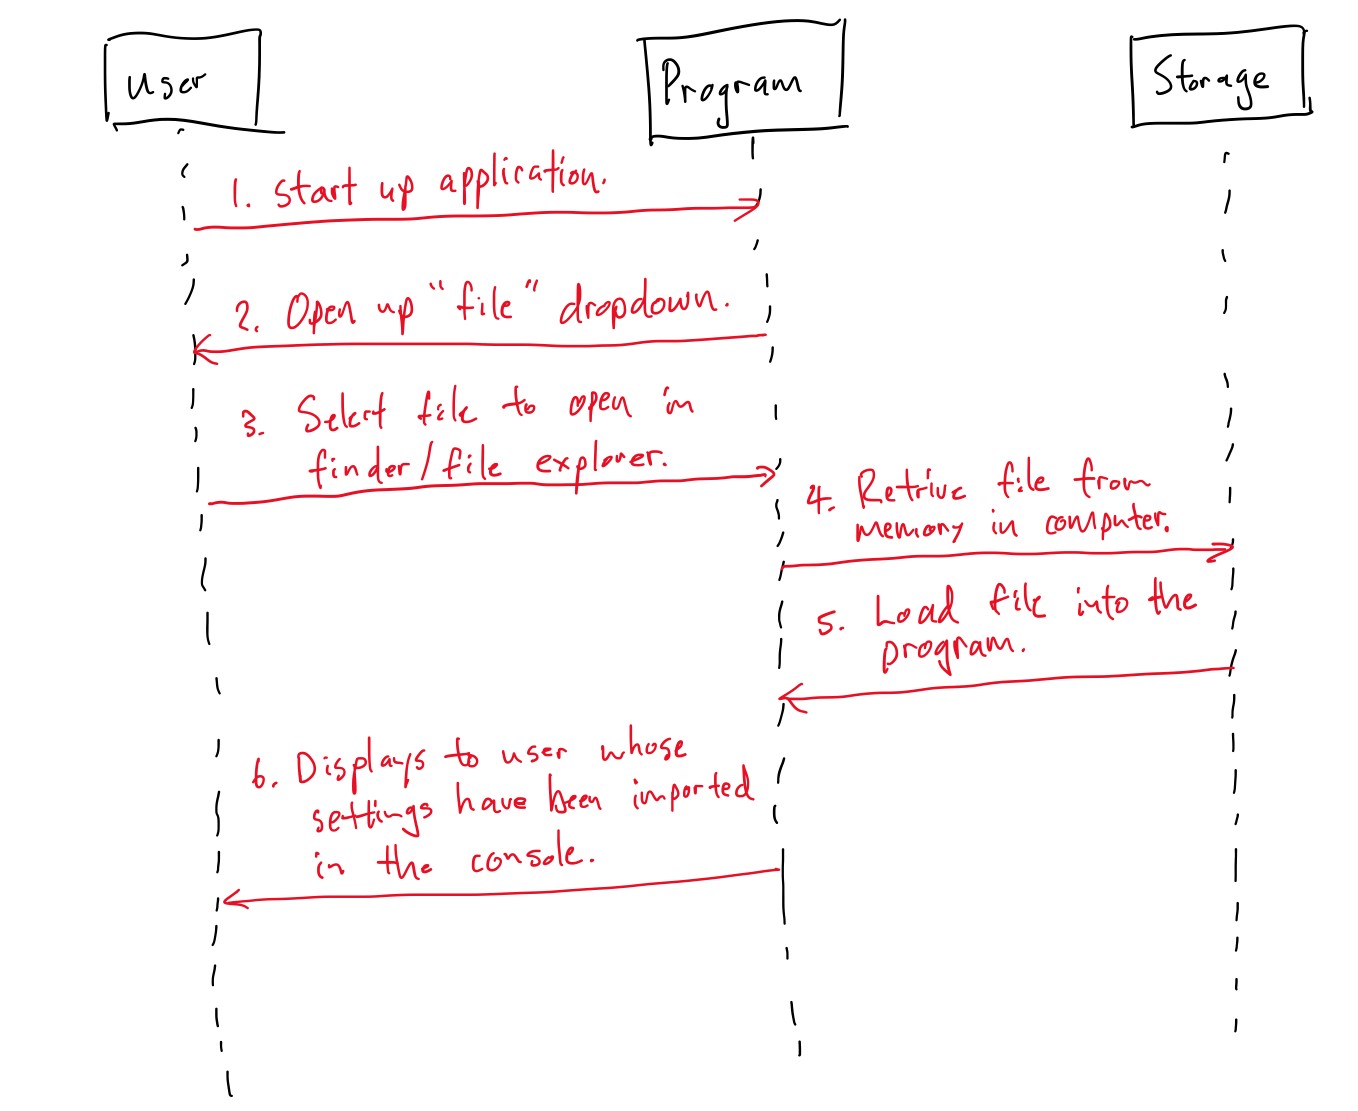 User
Program
Storage
1. Start up application.
2. Open up "file" dropdown.
3. Select file to open in
finder/file explorer.
4. Retrive file from
memory in computer.
5. Load file into the
program.
6. Displays to user whose
settings have been imported
in the console.